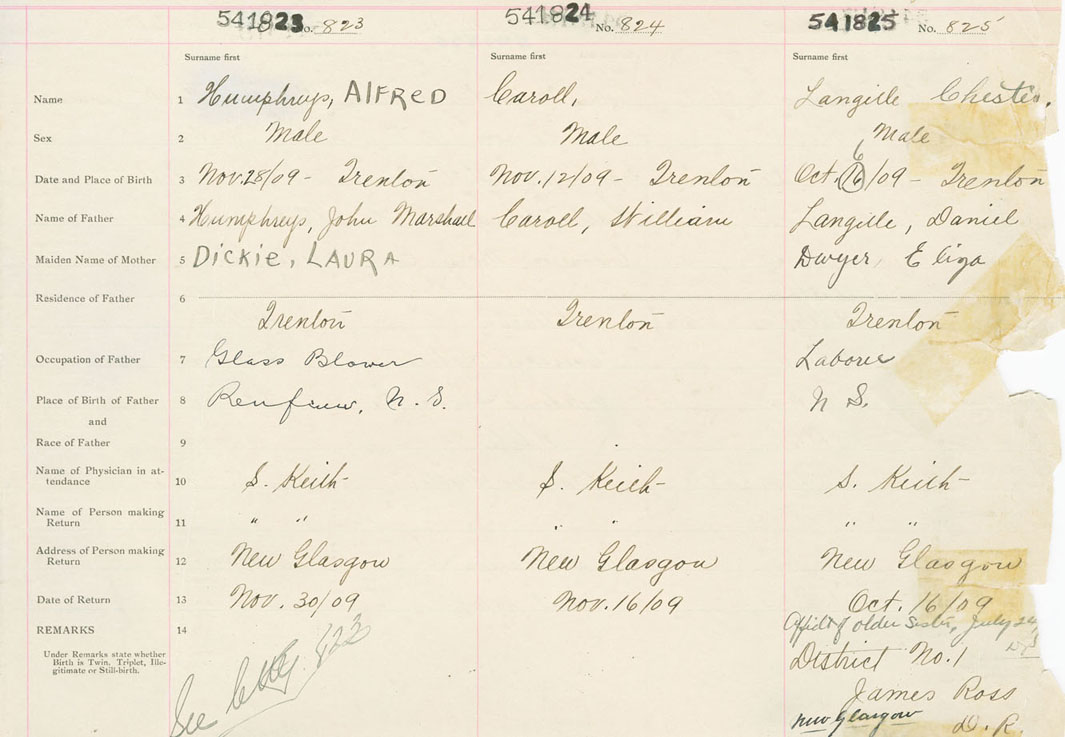 541823 No. 823 541824 No. 824 541825 No. 825
Surname first Surname first Surname first
Name 1 Humphreys, AlFRED Caroll, Langille Chester,
Sex 2 Male Male Male
6
Date and Place of Birth 3 Nov. 28/09 - Trenton Nov. 12/09 - Trenton Oct. 16/09 - Trenton
Name of Father 4 Humphreys, John Marshall Caroll, William Langille, Daniel
Maiden Name of Mother 5 Dickie, LAURA Dwyer, Eliza
Residence of Father 6
Trenton Trenton Trenton
Occupation of Father 7 Glass Blower Laborer
Place of Birth of Father 8 Renfrew, N.S. N S.
and
Race of Father 9
Name of Physician in at-
tendance 10 S. Keith S. Keith S. Keith
Name of Person making
Return 11 " " " " " "
Address of Person making
Return 12 New Glasgow New Glasgow New Glasgow
Date of Return 13 Nov. 30/09 Nov. 16/09 Oct. 16/09
REMARKS 14 Affidt of older Sister, July 24,
Under Remarks state whether
Birth is Twin, Triplet, Ille-
gitimate or Still-birth.
District No. 1
See 823
James Ross
New Glasgow D. R.